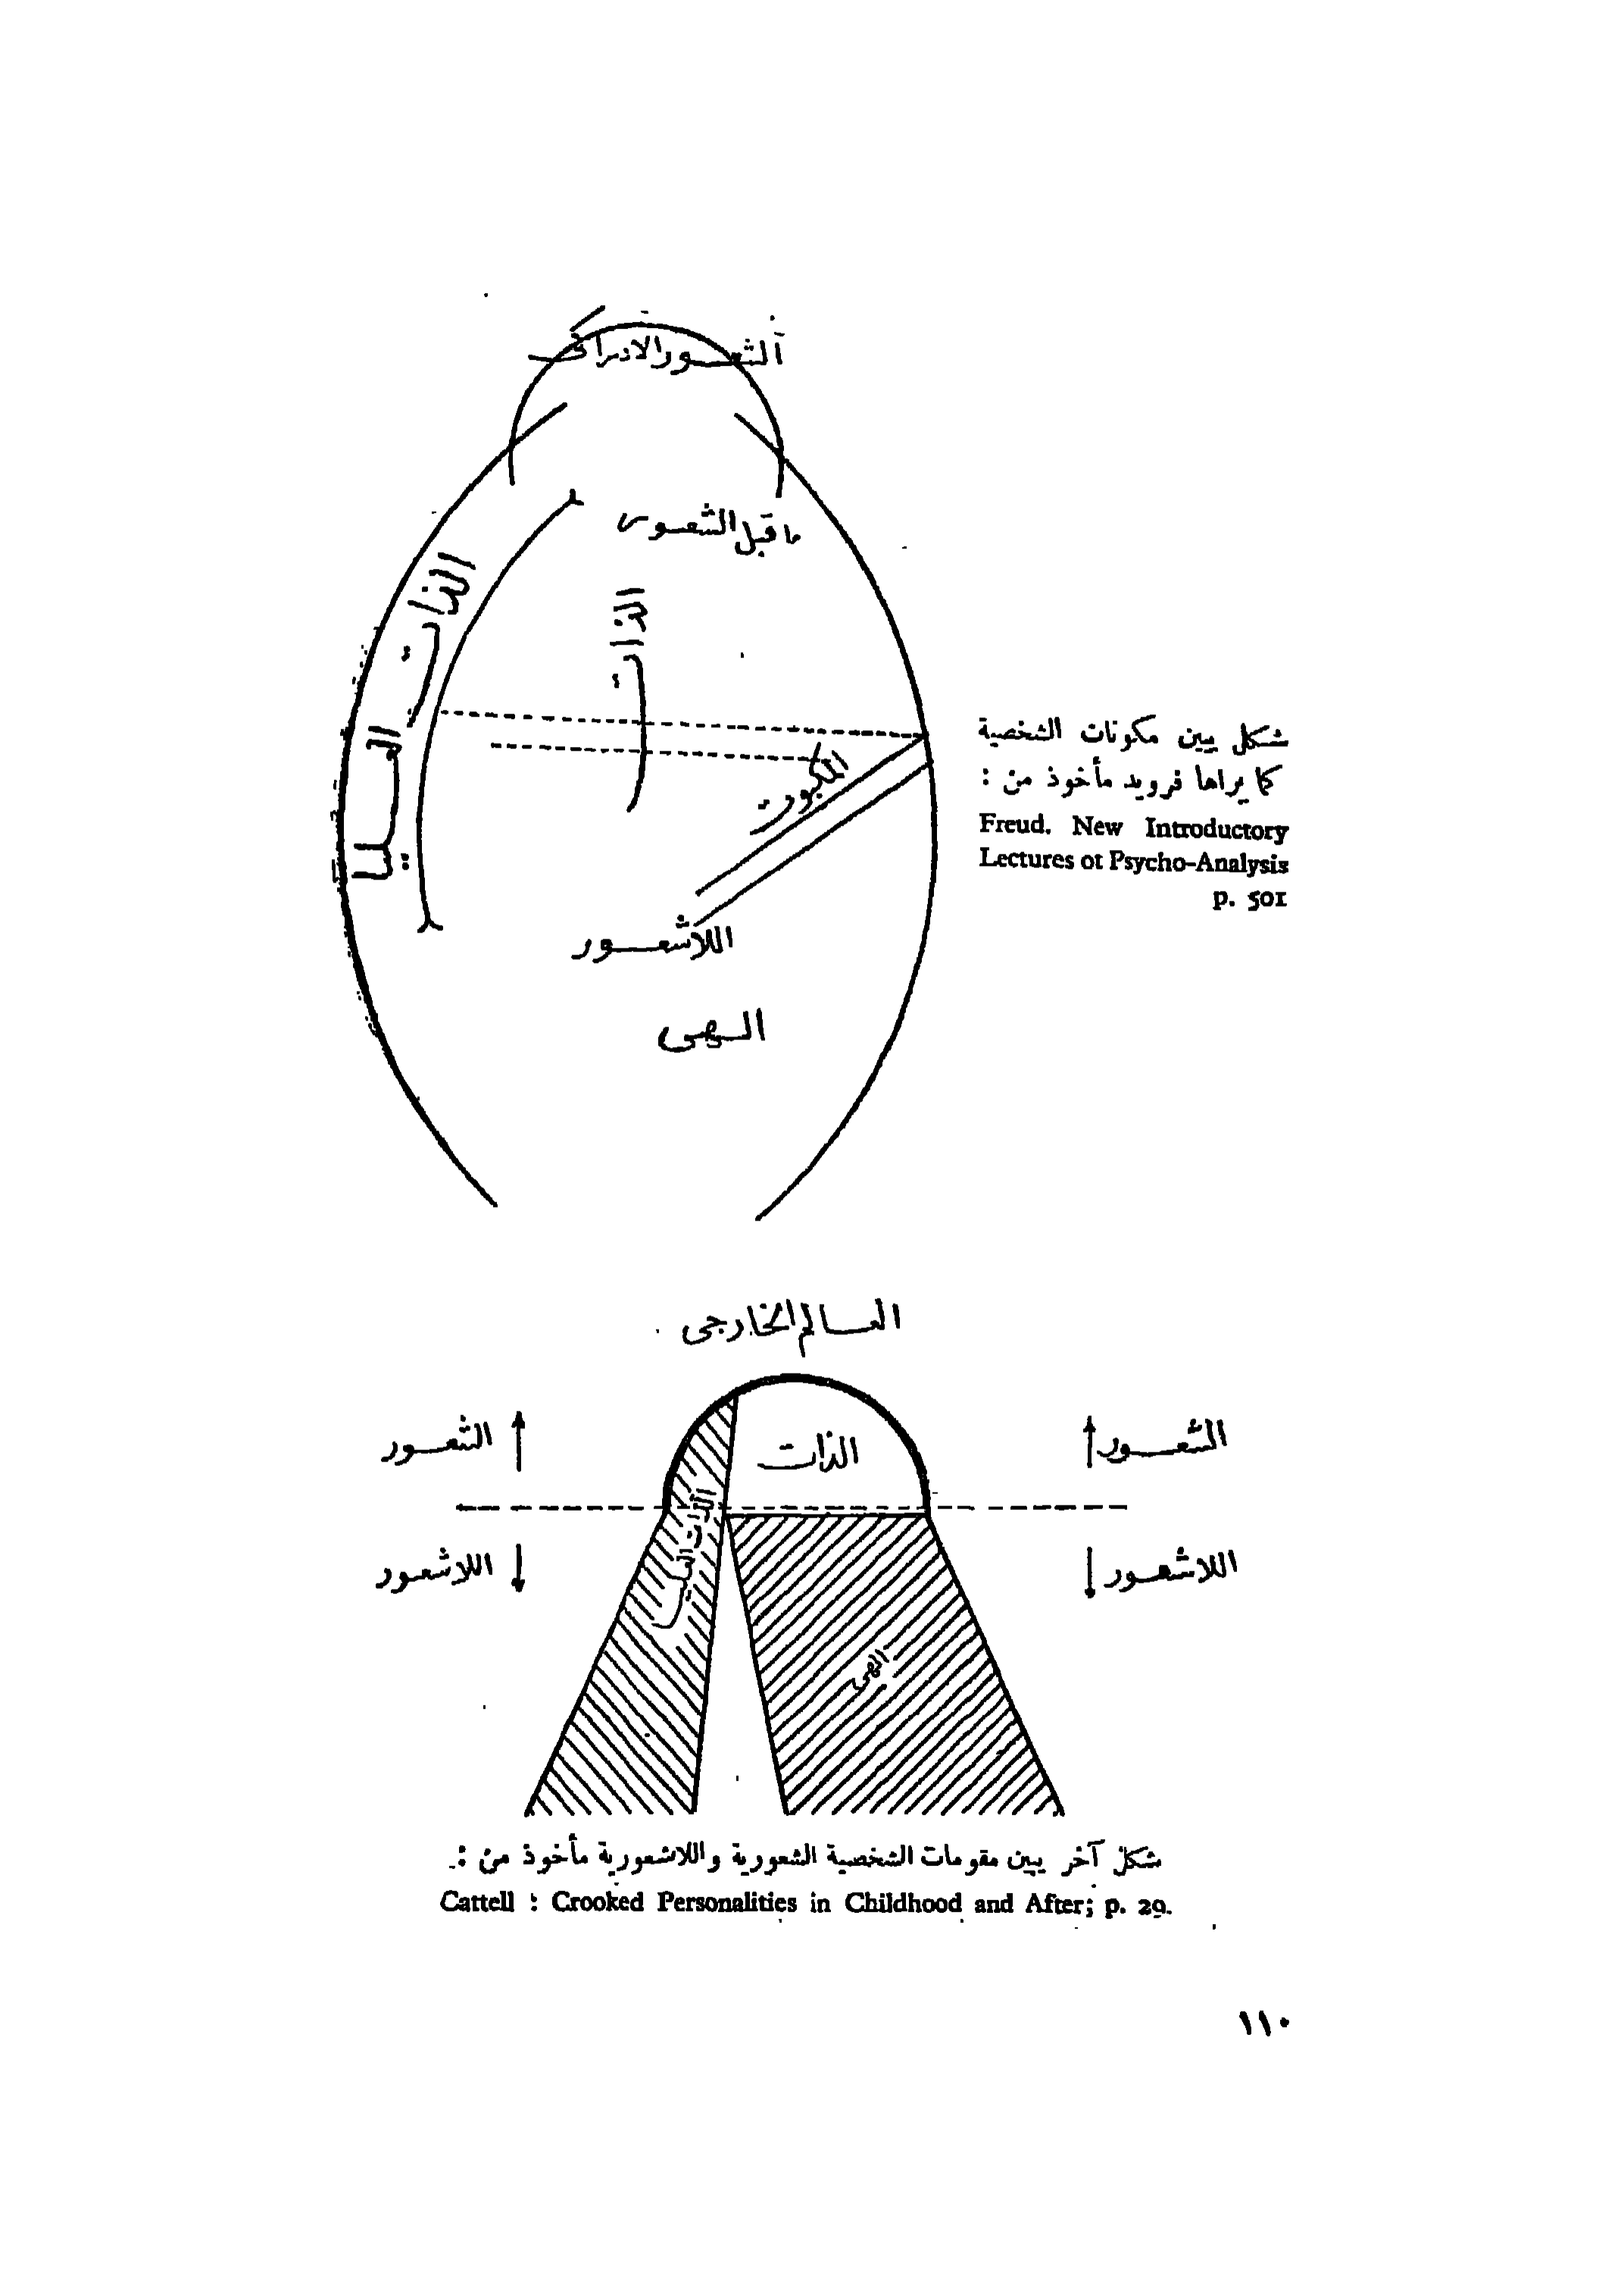 الشعور الادراكي
ما قبل الشعور
الذات العليا
الذات
المكبوت
اللاشعور
الهى
شكل يبين مكونات الشخصية
كما يراها فرويد مأخوذ من :
Freud. New Introductory
Lectures ot Psycho-Analysis
p. 501
العالم الخارجى
الشعور
الذات
الشعور
الذات العليا
اللاشعور
اللاشعور
الهى
شكل آخر يبين مقومات الشخصية الشعورية واللاشعورية مأخوذ من :
Cattell : Crooked Personalities in Childhood and After; p. 29.
١١٠